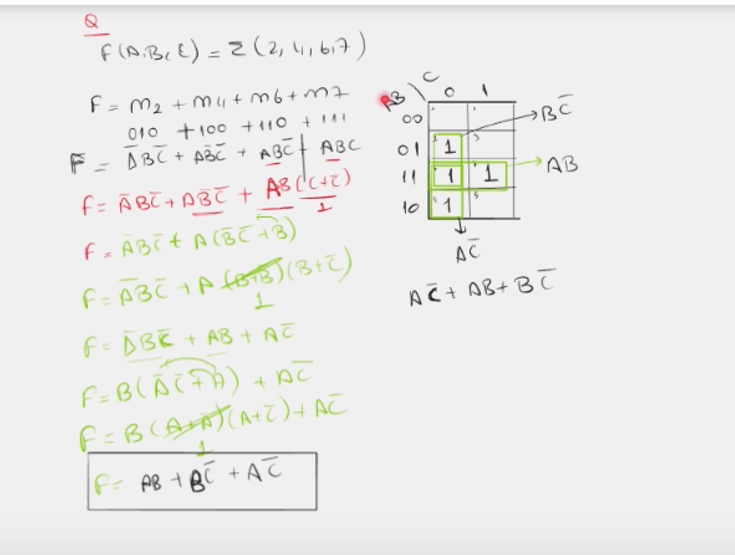 Q
F(A,B,C) = Σ(2,4,6,7)
F = m2 + m4 + m6 + m7
010 + 100 + 110 + 111
F = A̅BC̅ + AB̅C̅ + ABC̅ + ABC
F = A̅BC̅ + AB̅C̅ + AB(C+C̅)
1
F = A̅BC̅ + A(B̅C̅+B)
F = A̅BC̅ + A(B+B̅)(B+C̅)
1
F = A̅BC̅ + AB + AC̅
F = B(A̅C̅+A) + AC̅
F = B(A+A̅)(A+C̅) + AC̅
1
F = AB + BC̅ + AC̅
AB \ C
0 1
00
01 1
11 1 1
10 1
BC̅
AB
AC̅
AC̅ + AB + BC̅